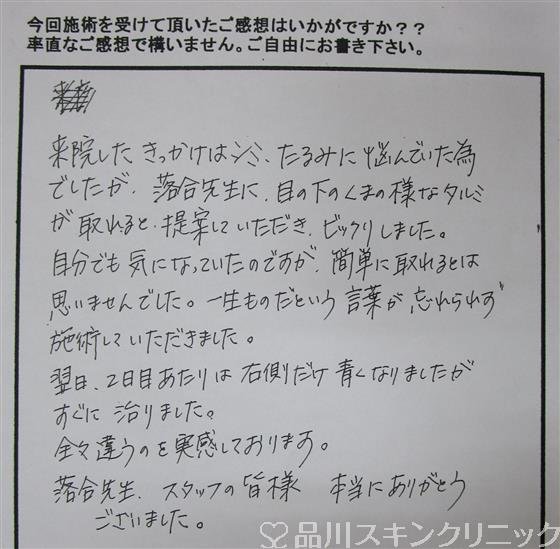 今回施術を受けて頂いたご感想はいかがですか？？
率直なご感想で構いません。ご自由にお書き下さい。
来院したきっかけはシミ、たるみに悩んでいた為
でしたが、落合先生に、目の下のくまの様なタルミ
が取れると、提案していただき、ビックリしました。
自分でも気になっていたのですが、簡単に取れるとは
思いませんでした。一生ものだという言葉が忘れられず
施術していただきました。
翌日、2日目あたりは右側だけ青くなりましたが
すぐに治りました。
全々違うのを実感しております。
落合先生、スタッフの皆様 本当にありがとう
ございました。
品川スキンクリニック